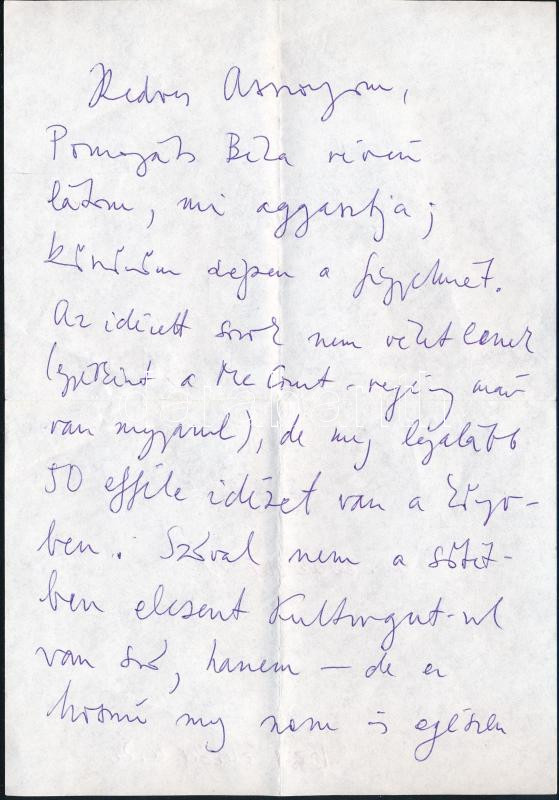 Kedves Asszonyom,
Pomogáts Béla révén
látom, mi aggasztja;
köszönöm szépen a figyelmét.
Az idézett sorok nem véletlenek
(egyébként a Mc Court-regény már
van magyarul), de még legalább
50 efféle idézet van a könyv-
ben. Szóval nem a sötét-
ben elcsent Kulturgut-ról
van szó, hanem — de ez
hosszú, meg nem is egészen